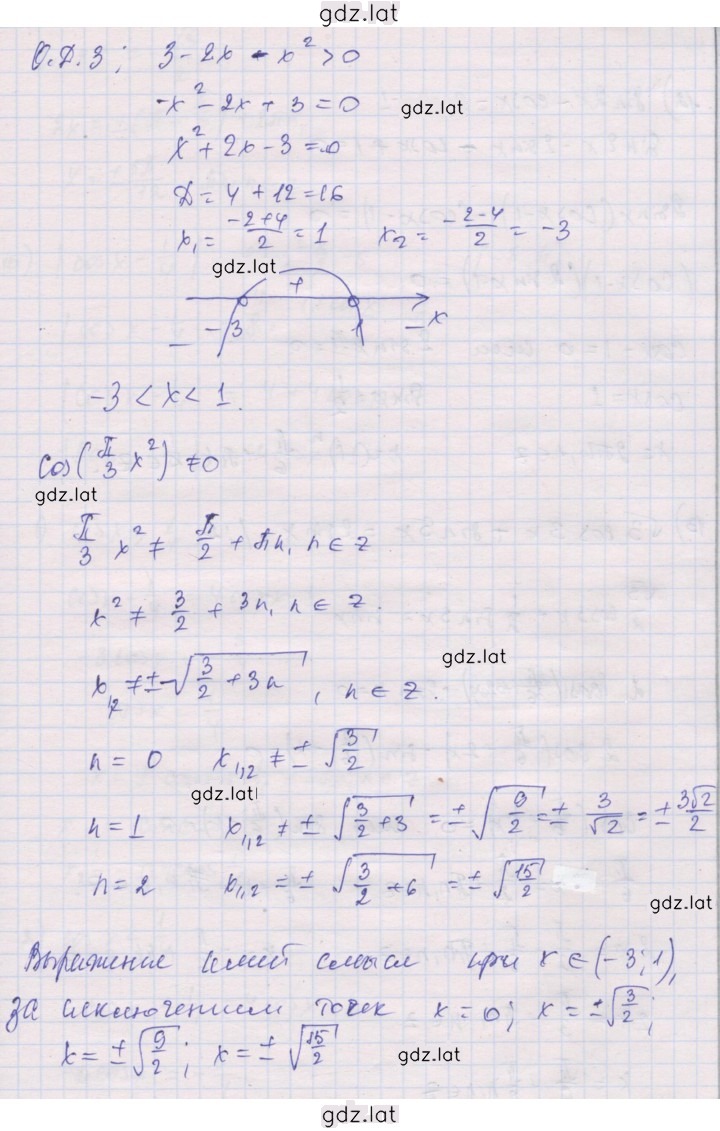 gdz.lat
О.Д.З; 3-2x-x²>0
-x²-2x+3=0
gdz.lat
x²+2x-3=0
Д=4+12=16
x₁=(-2+4)/2=1 x₂=(-2-4)/2=-3
gdz.lat
+
-3 1 x
- -
-3<x<1.
cos(π/3 x²)≠0
gdz.lat
π/3 x² ≠ π/2+πn, n∈z
x²≠3/2+3n, n∈z.
gdz.lat
x₁,₂≠±√(3/2+3n), n∈z.
n=0 x₁,₂≠±√(3/2)
gdz.lat
n=1 x₁,₂≠±√(3/2+3)=±√(9/2)=±3/√2=±3√2/2
n=2 x₁,₂=±√(3/2+6)=±√(15/2)
gdz.lat
Выражение имеет смысл при x∈(-3;1),
за исключением точек x=0; x=±√(3/2);
x=±√(9/2); x=±√(15/2)
gdz.lat
gdz.lat